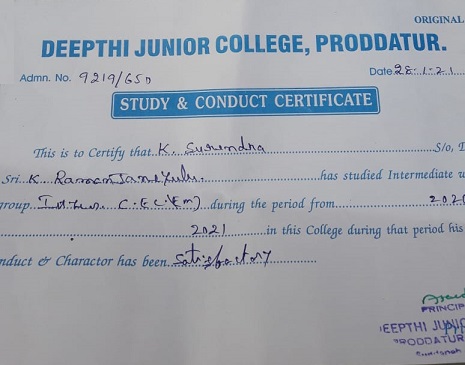 ORIGINAL
DEEPTHI JUNIOR COLLEGE, PRODDATUR.
Admn. No. 9219/GSD Date 28.1.21
STUDY & CONDUCT CERTIFICATE
This is to Certify that K. Surendra S/o, D
Sri. K. Ramanjaneyulu. has studied Intermediate
group C.E.C(EM) during the period from
2021 in this College during that period his
nduct & Charactor has been satisfactory
PRINCIP
EEPTHI JUNI
PRODDATUR